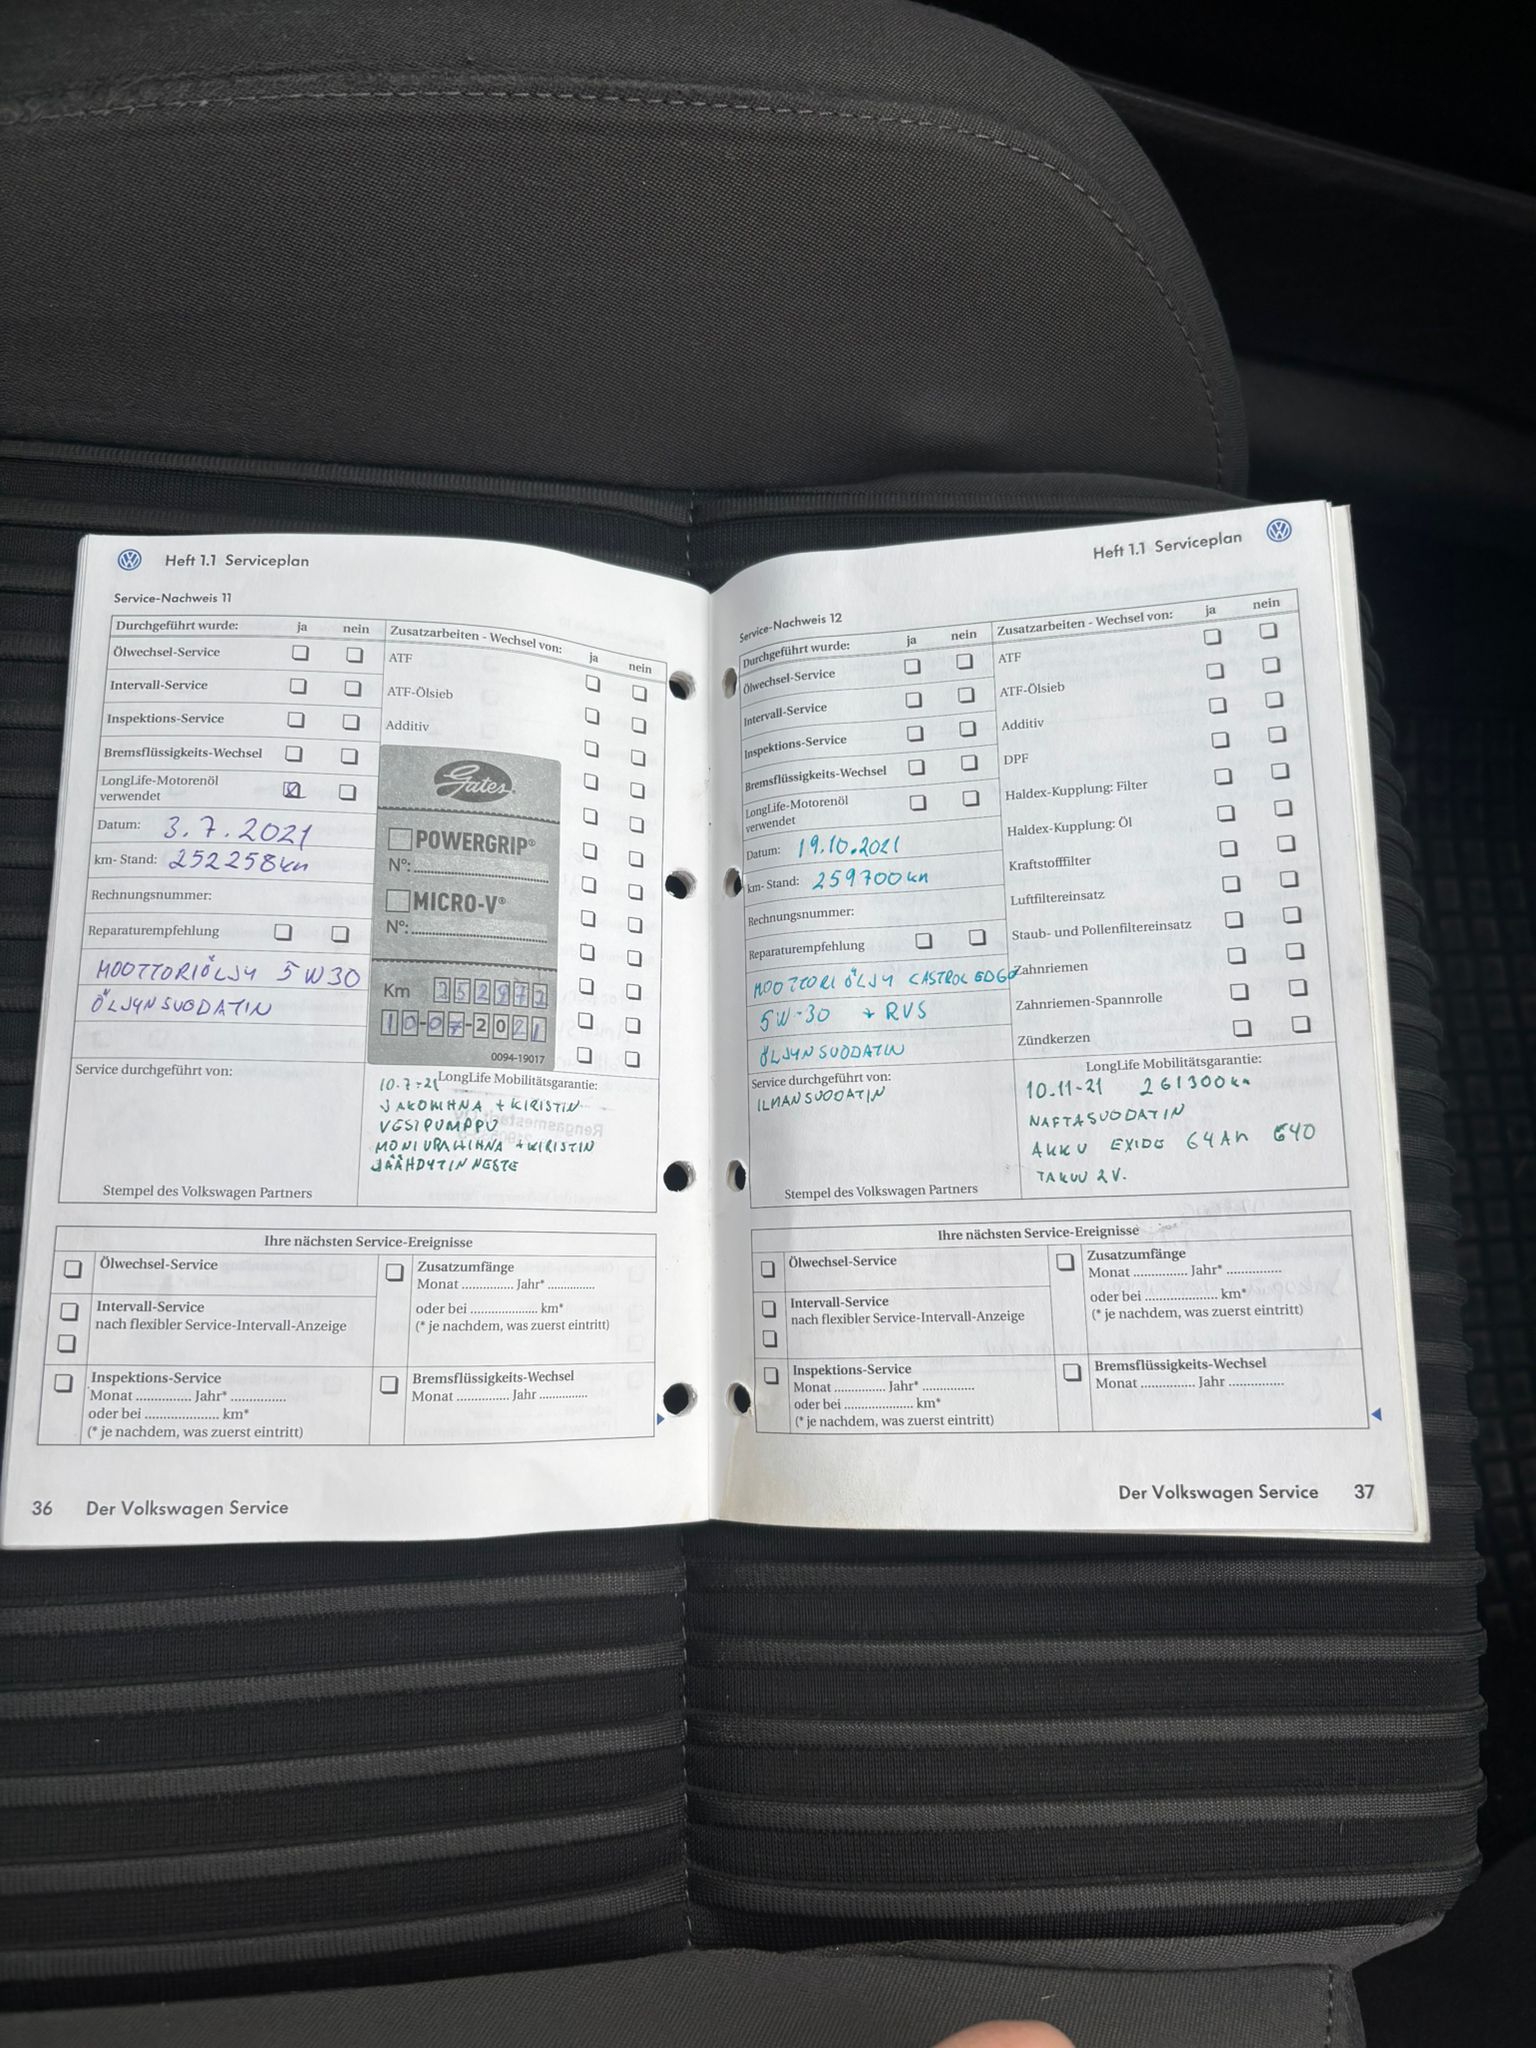 Heft 1.1 Serviceplan
Service-Nachweis 11
Durchgeführt wurde: ja nein
Ölwechsel-Service
Intervall-Service
Inspektions-Service
Bremsflüssigkeits-Wechsel
LongLife-Motorenöl
verwendet
Datum: 3.7.2021
km- Stand: 252258km
Rechnungsnummer:
Reparaturempfehlung
MOOTTORIÖLJY 5W30
ÖLJYNSUODATIN
Service durchgeführt von:
Stempel des Volkswagen Partners
Zusatzarbeiten - Wechsel von: ja nein
ATF
ATF-Ölsieb
Additiv
Gates
POWERGRIP®
N°:
MICRO-V®
N°:
Km 252972
10-07-2021
0094-19017
LongLife Mobilitätsgarantie:
10.7-21
JAKOHIHNA + KIRISTIN
VESIPUMPPU
MONIURAHIHNA + KIRISTIN
JÄÄHDYTINNESTE
Ihre nächsten Service-Ereignisse
Ölwechsel-Service
Intervall-Service
nach flexibler Service-Intervall-Anzeige
Inspektions-Service
Monat .............. Jahr* ..............
oder bei .................... km*
(* je nachdem, was zuerst eintritt)
Zusatzumfänge
Monat .............. Jahr* ..............
oder bei .................... km*
(* je nachdem, was zuerst eintritt)
Bremsflüssigkeits-Wechsel
Monat .............. Jahr ..............
36 Der Volkswagen Service
Heft 1.1 Serviceplan
Service-Nachweis 12
Durchgeführt wurde: ja nein
Ölwechsel-Service
Intervall-Service
Inspektions-Service
Bremsflüssigkeits-Wechsel
LongLife-Motorenöl
verwendet
Datum: 19.10.2021
km- Stand: 259700km
Rechnungsnummer:
Reparaturempfehlung
MOOTTORIÖLJY CASTROL EDGE
5W-30 + RVS
ÖLJYNSUODATIN
Service durchgeführt von:
ILMANSUODATIN
Stempel des Volkswagen Partners
Zusatzarbeiten - Wechsel von: ja nein
ATF
ATF-Ölsieb
Additiv
DPF
Haldex-Kupplung: Filter
Haldex-Kupplung: Öl
Kraftstofffilter
Luftfiltereinsatz
Staub- und Pollenfiltereinsatz
Zahnriemen
Zahnriemen-Spannrolle
Zündkerzen
LongLife Mobilitätsgarantie:
10.11-21 261300km
NAFTASUODATIN
AKKU EXIDE 64Ah 640
TAKUU 2V.
Ihre nächsten Service-Ereignisse
Ölwechsel-Service
Intervall-Service
nach flexibler Service-Intervall-Anzeige
Inspektions-Service
Monat .............. Jahr* ..............
oder bei .................... km*
(* je nachdem, was zuerst eintritt)
Zusatzumfänge
Monat .............. Jahr* ..............
oder bei .................... km*
(* je nachdem, was zuerst eintritt)
Bremsflüssigkeits-Wechsel
Monat .............. Jahr ..............
Der Volkswagen Service 37